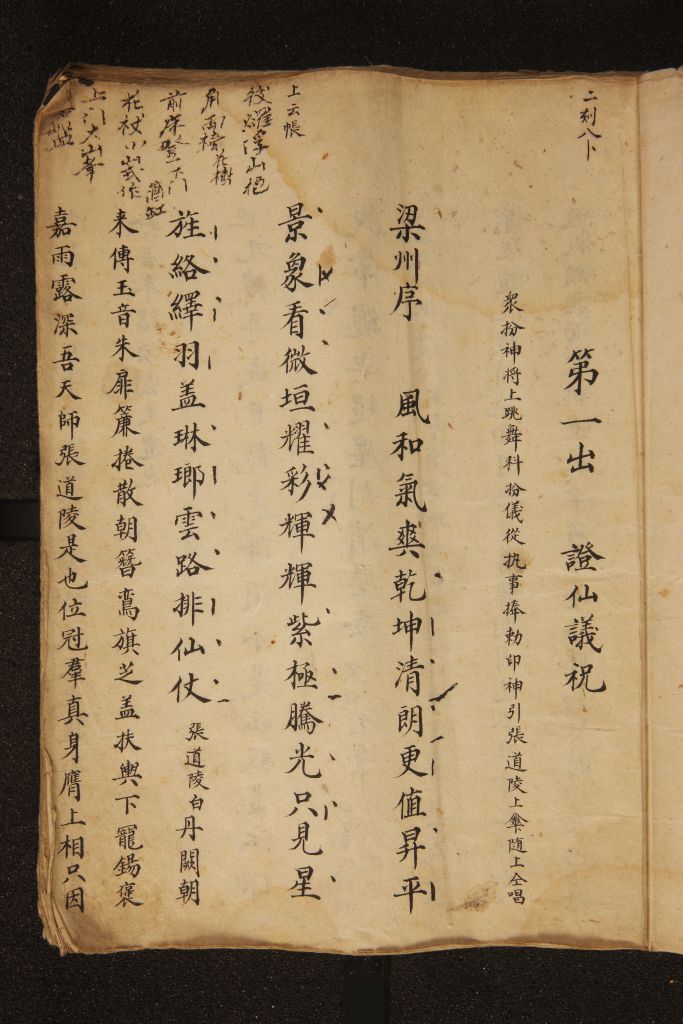 二刻八卜
第一出 證仙議祝
衆扮神将上跳舞科扮儀從执事捧勅印神引張道陵上傘随上仝唱
梁州序 風和氣爽乾坤清朗更值昇平
景象看微垣耀彩輝輝紫極騰光只見星
旌絡繹羽盖琳瑯雲路排仙仗張道陵白丹闕朝
来傳玉音朱扉簾捲散朝簪鸞旗芝盖扶輿下寵錫褒
嘉雨露深吾天師張道陵是也位冠羣真身膺上相只因
上云帳
後耀浮山
前
花
上